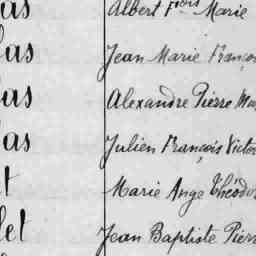 as Albert Fois Marie
las Jean Marie Franço
las Alexandre Pierre Ma
las Julien François Victo
t Marie Ange Théodo
let Jean Baptiste Pier